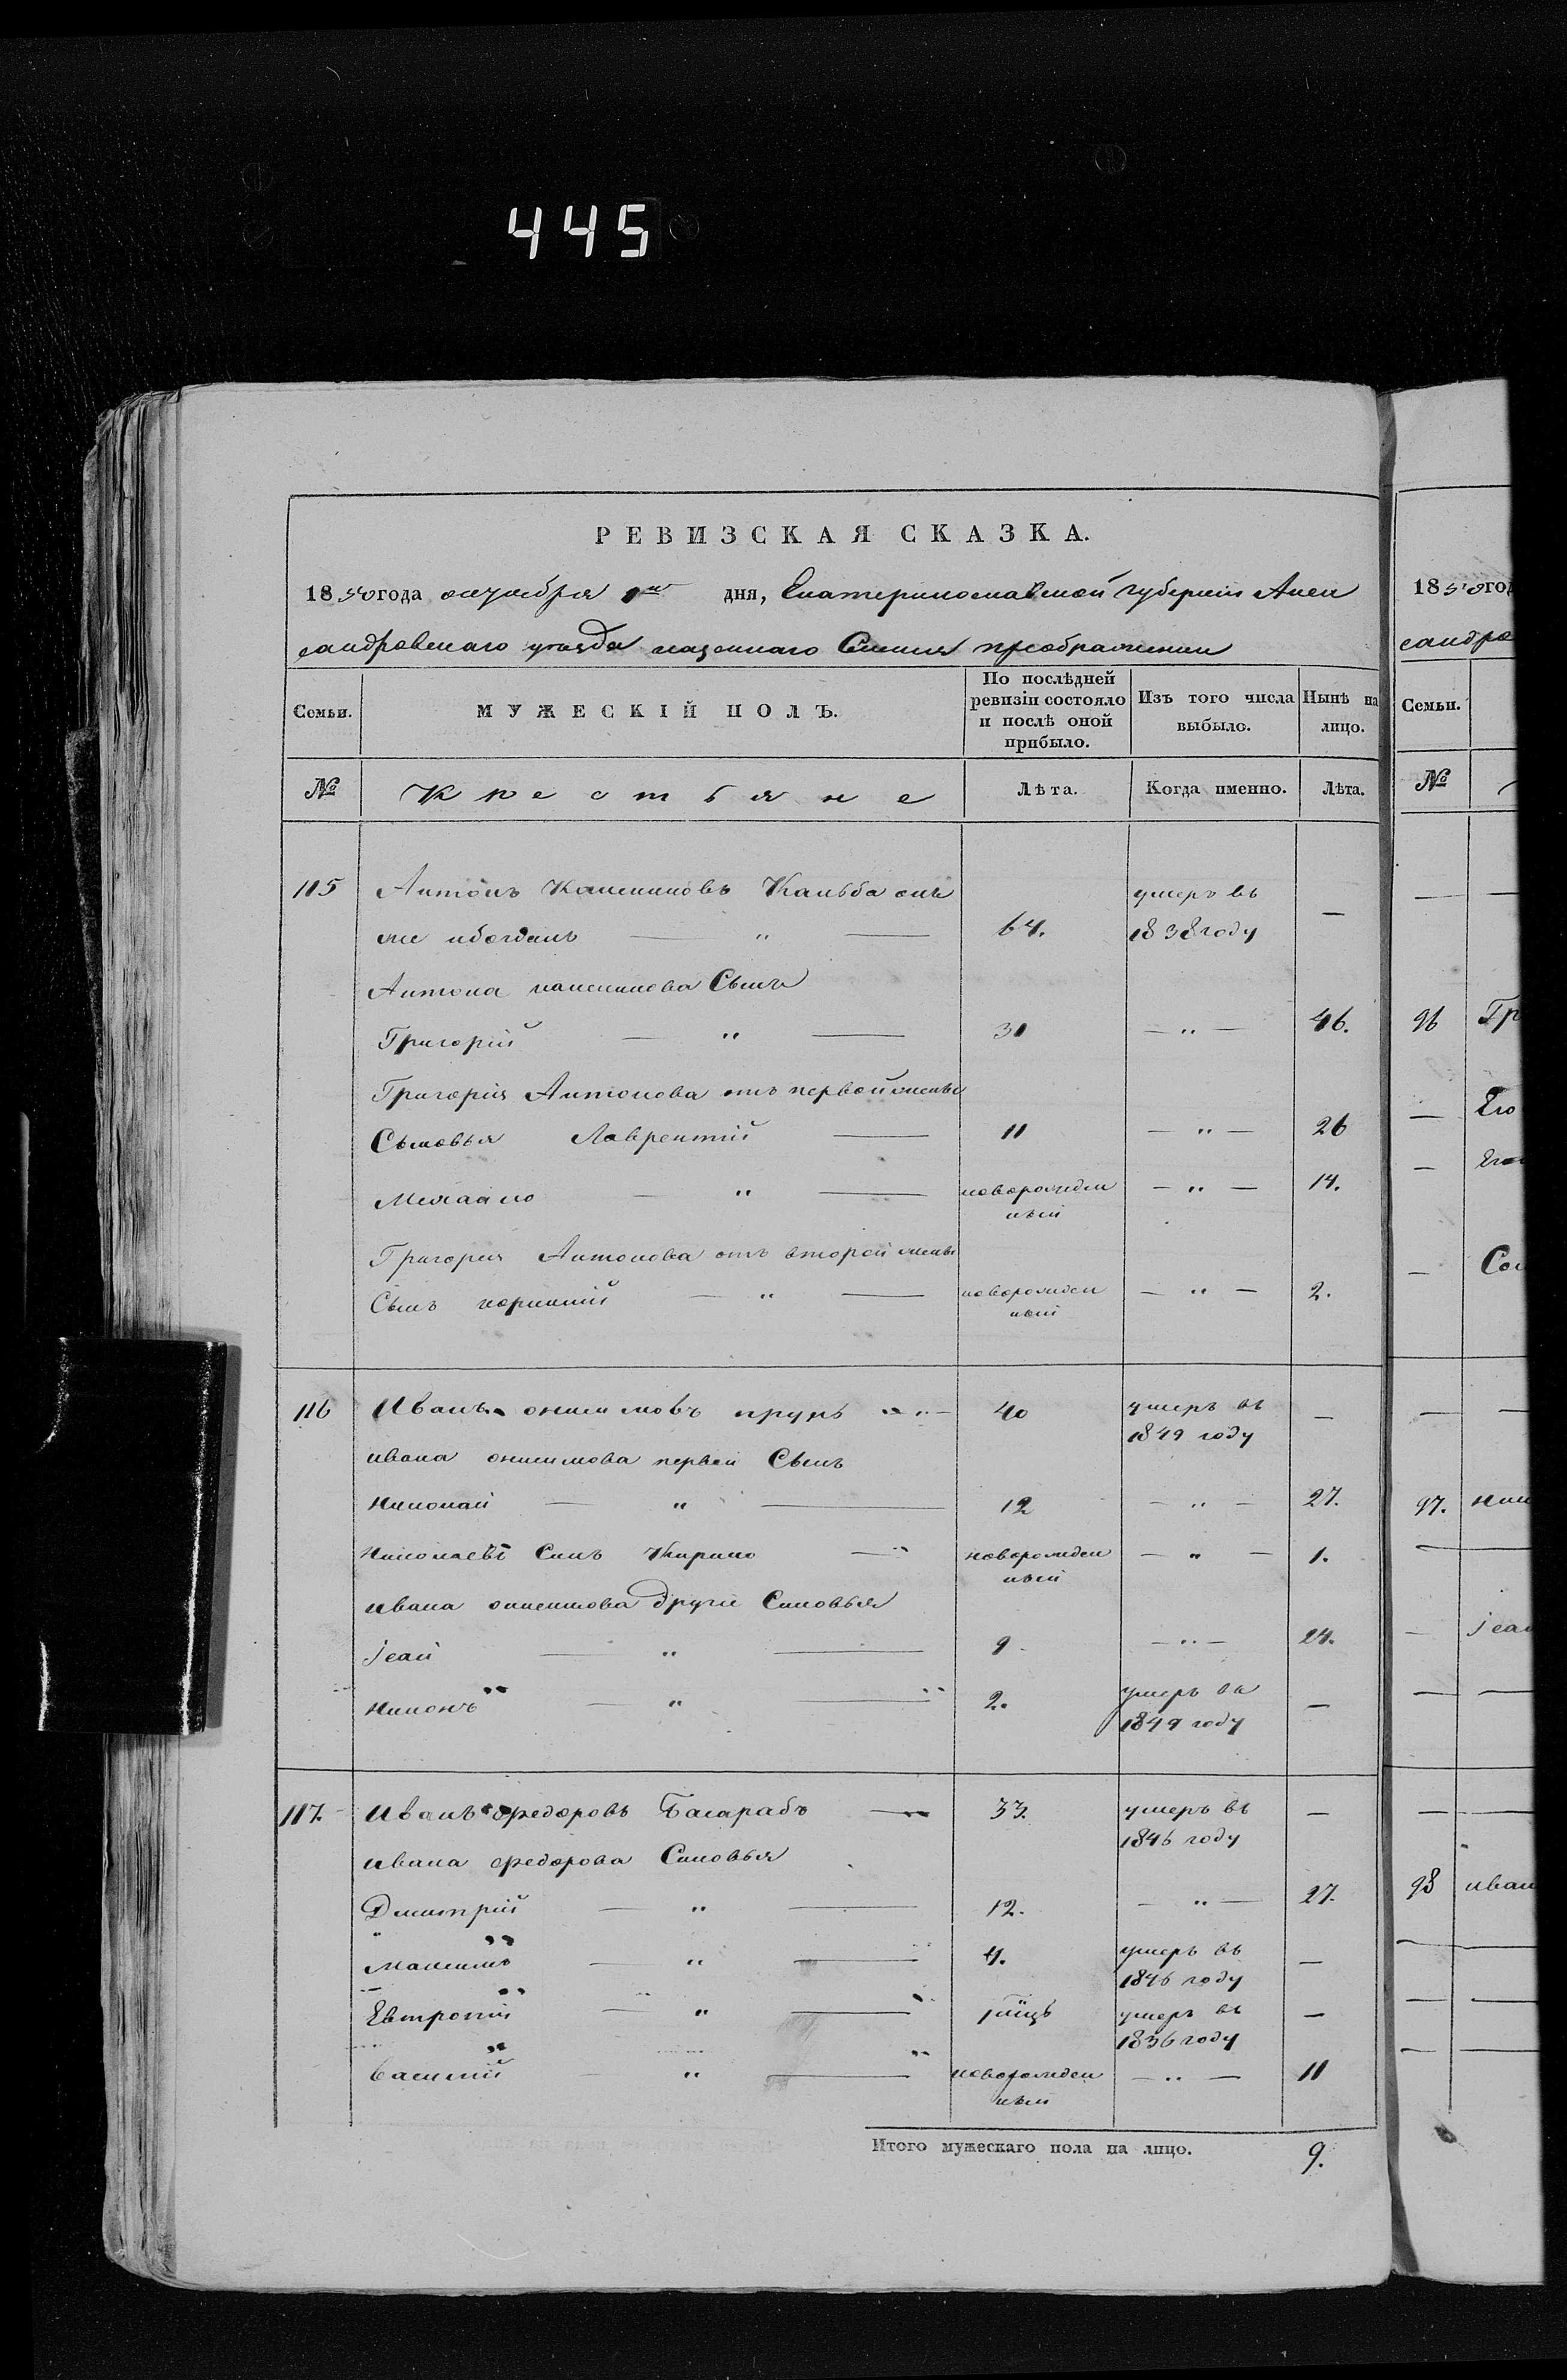 445
РЕВИЗСКАЯ СКАЗКА.
1850 года октября 1го дня, Екатеринославской губернии Алек
сандровскаго уезда казеннаго Селения преображенки
Семьи.
МУЖЕСКІЙ ПОЛЪ.
По послѣдней ревизіи состояло и послѣ оной прибыло.
Изъ того числа выбыло.
Нынѣ на лицо.
№
Крестьяне
Лѣта.
Когда именно.
Лѣта.
115 Антонъ Калениковъ Кальба онъ умеръ въ
же ибогданъ — " — 64. 1838 году —
Антона каленикова Сынъ
Григорій — " — 31 — " — 46.
Григорія Антонова отъ первой жены
Сыновья Лаврентий — 11 — " — 26
Михаило — " — новорожден — " — 14.
ный
Григория Антонова отъ второй жены
Сынъ корнилий — " — новорожден — " — 2.
ный
116 Иванъ онисимовъ крупъ 40 умеръ въ —
1849 году
ивана онисимова первой Сынъ
николай — " — 12 — " — 27.
Николаевъ Синъ Кирило — " новорожден — " — 1.
ный
ивана онисимова другие Синовья
исай — " — 9 — " — 24.
никонъ — " — 2. умеръ въ —
1849 году
117. Иванъ федоровъ Басарабъ — 33. умеръ въ —
1846 году
ивана федорова Синовья
Дмитрий — " — 12. — " — 27.
Максимъ — " — 4. умеръ въ —
1846 году
Евтропий — " — умеръ въ —
1836 году
василий — " — новорожден — " — 11
ный
Итого мужескаго пола на лицо. 9.
1850 год
сандро
Семьи.
№
96 Гр
Его
97. ник
98 иван